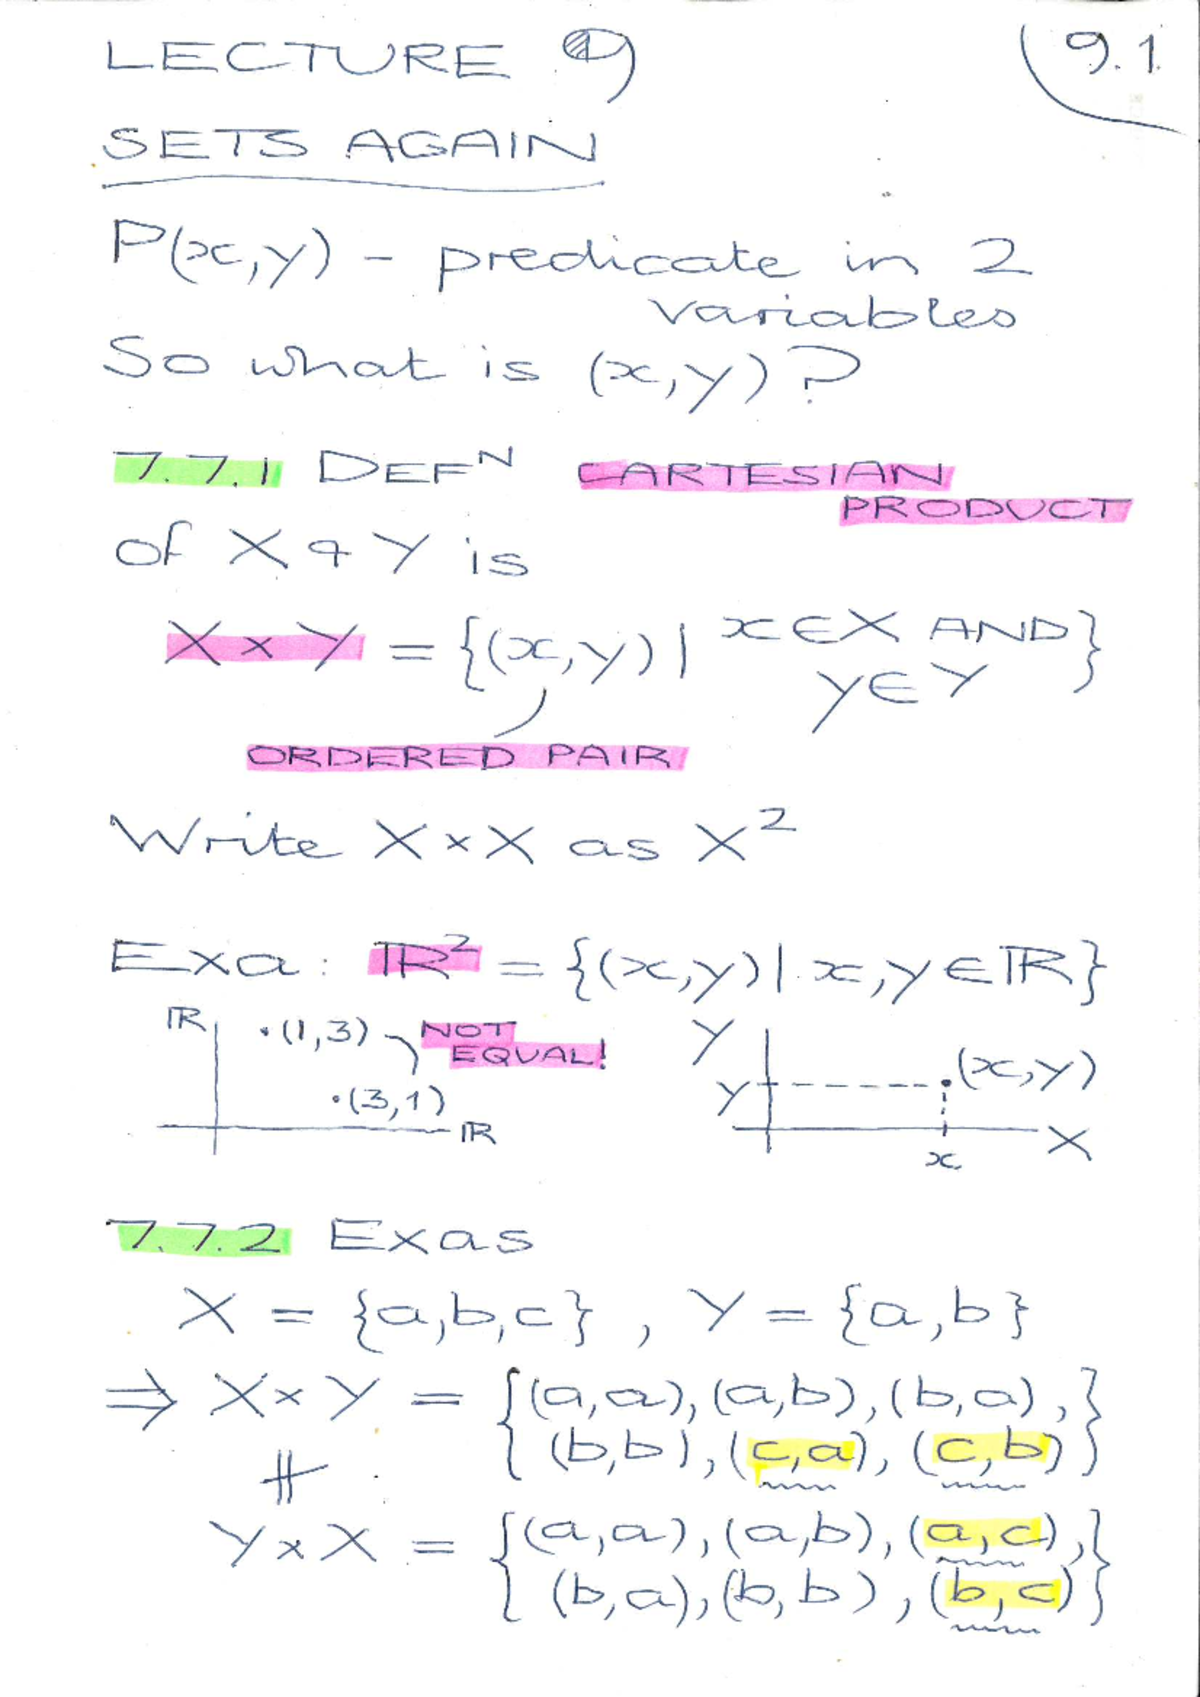 LECTURE 9
9.1
SETS AGAIN
P(x,y) - predicate in 2
variables
So what is (x,y)?
7.7.1 DEFᴺ CARTESIAN
PRODUCT
of X & Y is
X × Y = {(x,y) | x∈X AND
y∈Y}
ORDERED PAIR
Write X×X as X²
Exa: ℝ² = {(x,y) | x,y∈ℝ}
ℝ
•(1,3)
NOT
EQUAL!
•(3,1)
ℝ
Y
(x,y)
y
X
x
7.7.2 Exas
X = {a,b,c} , Y = {a,b}
⇒ X×Y = {(a,a),(a,b),(b,a),
(b,b),(c,a),(c,b)}
≠
Y×X = {(a,a),(a,b),(a,c),
(b,a),(b,b),(b,c)}